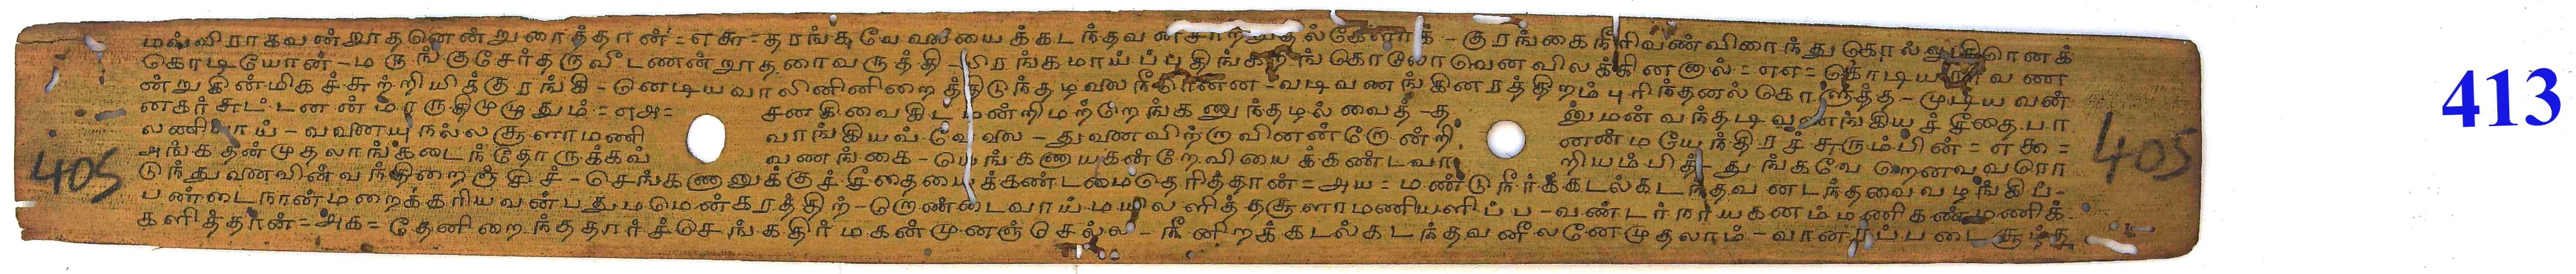 மவ்விராகவன்றூதனென்றுரைத்தான்=௭௬=தரங்கவேலையைக்கடந்தவன்சாற்றுதல்கேளாக்-குரங்கைநீரிவண்விரைந்துகொல்லுதிரெனக்
கொடியோன்-மருங்குசேர்தருவீடணன்றூதரைவருத்தி-யிரங்கமாய்ப்பதிங்கறங்கொலோவெனவிலக்கினனால்=௭௭=கொடிய வண
ன்றுகின்மிகச்சுற்றியித்குரங்கி-னெடியவாலினினிறைத்திடுந்தழலநீரென்ன-வடிவணங்கினரத்திறம்புரிந்தனல்கொளுத்த-முடியவன்
னகர்சுட்டனன்மாருதிமுழுதும்=௭௮= சனகிவைகிடமன்றிமற்றெங்கணுந்தழல்வைத்-த னுமன்வந்தடிவணங்கியச்சீதைபா
லணியாய்-வவணயுநல்லசூளாமணி வாங்கியவ்வேலை-துவணவிற்றாவினன்றே ன்றி னண்மயேந்திரச்சுரும்பின்=௭௯=
அங்கதன்முதலாங்கடைந்தோருக்கவ் வணங்கை-யெங்கணாயகன்றேவியைக்கண்டவா றியம்பித்-துங்கவேறெனவவரொ
டுந்துவணவின்வந்திறைஞ்சிச்-செங்கணானுக்குச்சீதையைக்கண்டமைதெரித்தான்=௮௰=மண்டுநீர்க்கடல்கடந்தவனடந்தவைவழங்கிப்-
பண்டைநான்மறைக்கரியவன்பதுமமென்கரத்திற்-றொண்டைவாய்மயிலளித்தசூளாமணியளிப்ப-வண்டர்நாயகனம்மணிகண்மணிக்
களித்தான்=௮௧=தேனிறைந்ததார்ச்செங்கதிர்மகன்முனஞ்செல்ல-நீனிறக்கடல்கடந்தவனீலனேமுதலாம்-வானரப்படைசூழ்த
405
405
413